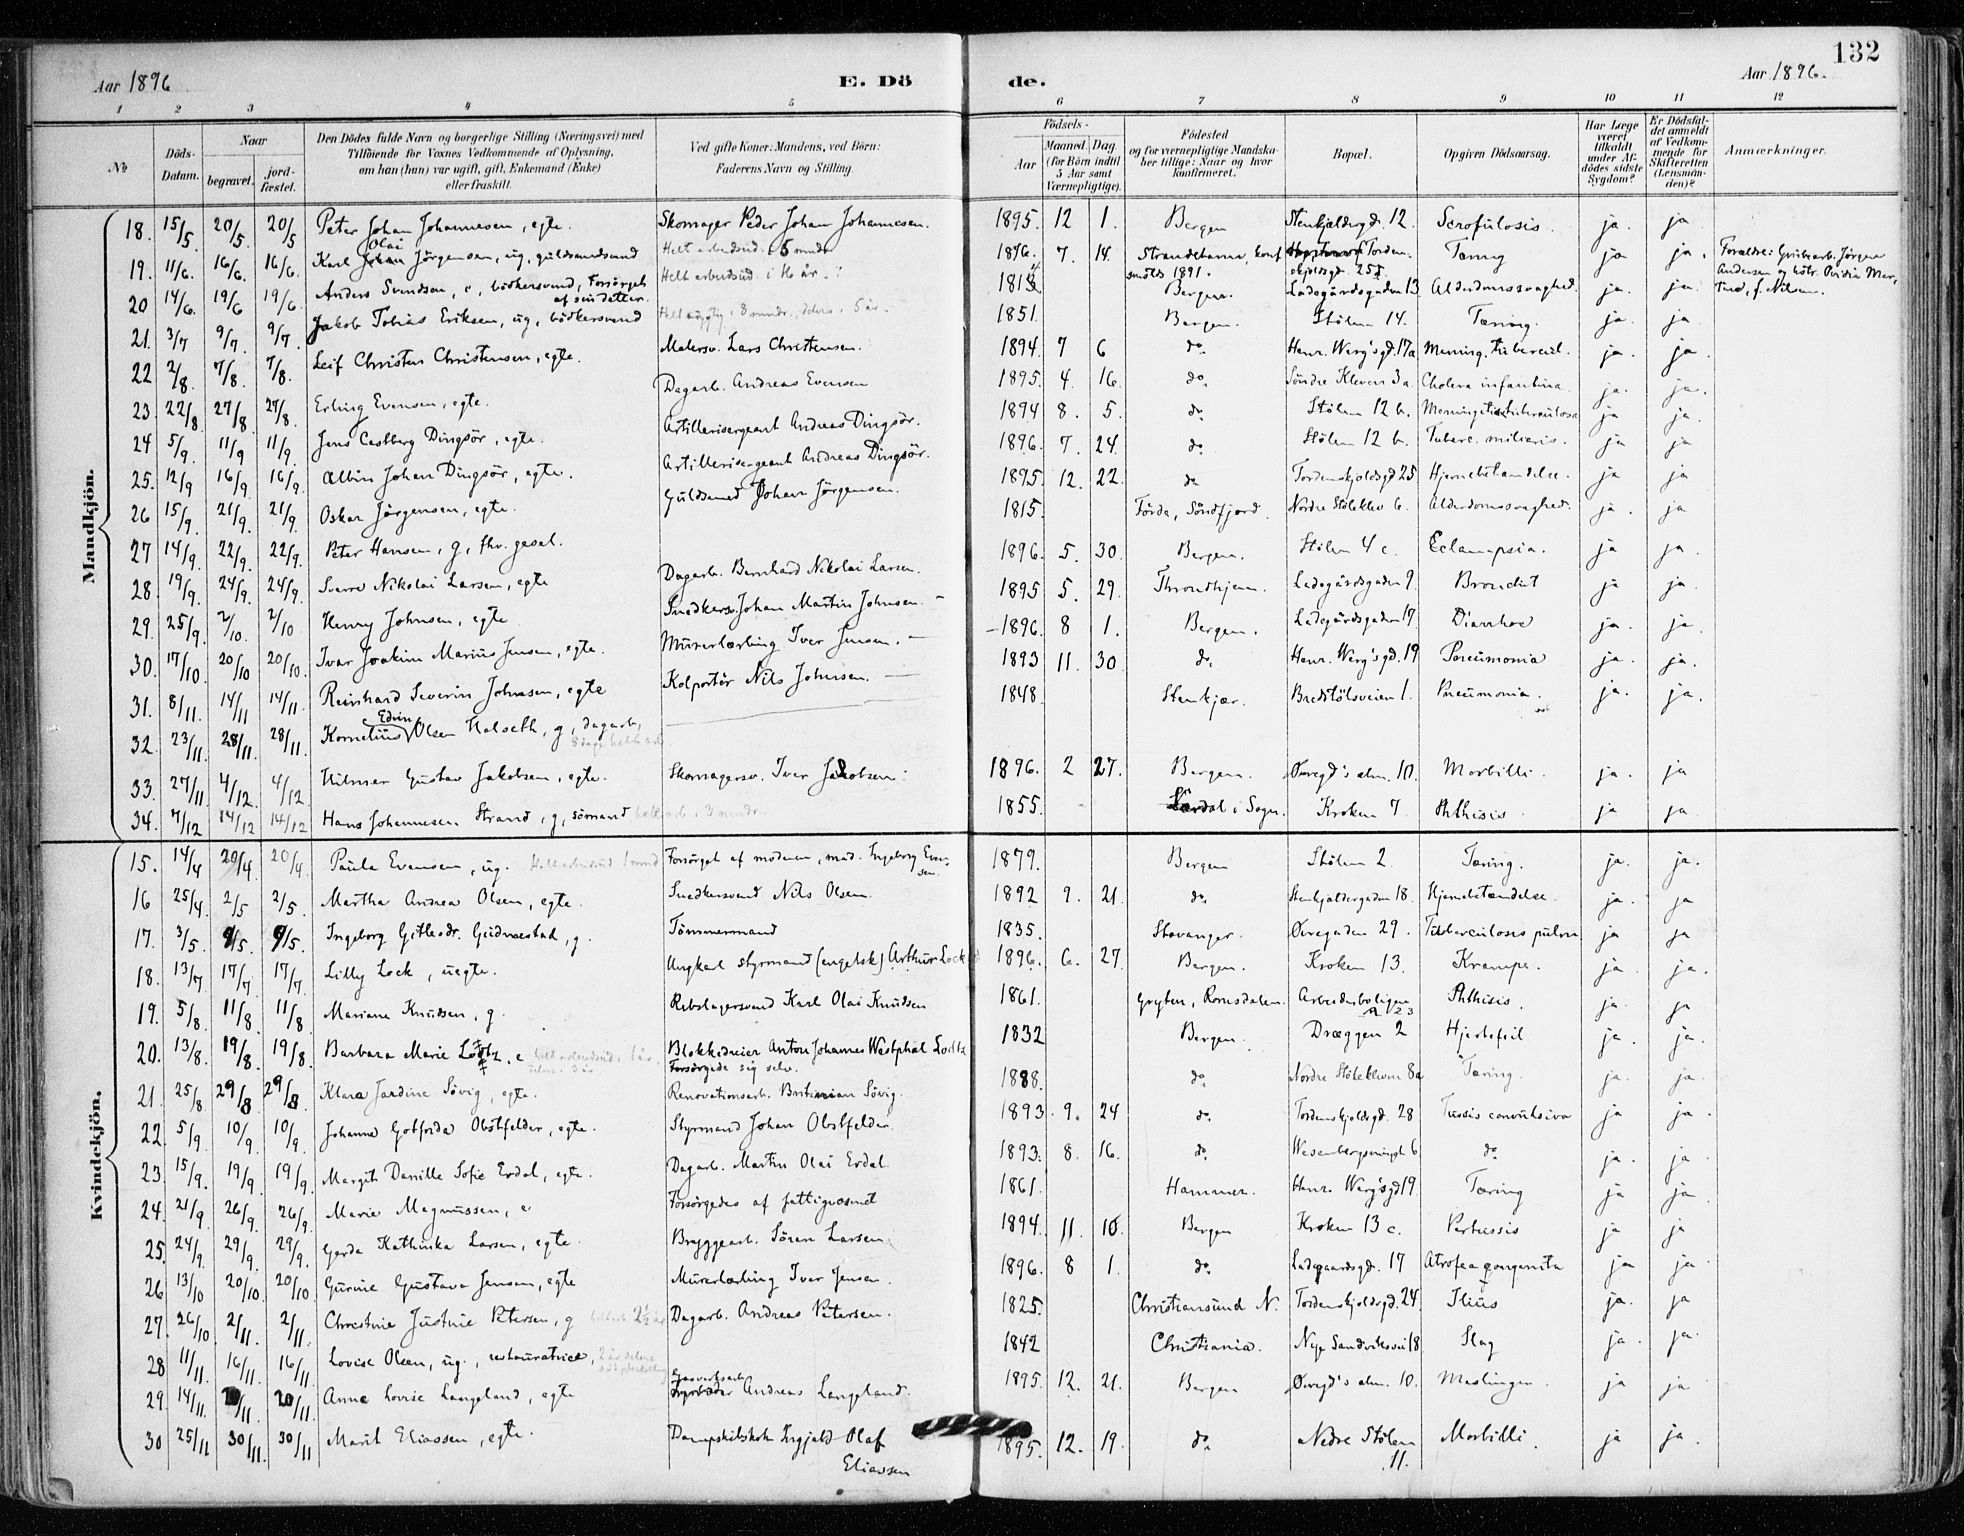 132
Aar 1896
E. Dö
de.
Aar 1896.
1 2 3 4 5 6 7 8 9 10 11 12
No
Döds-Datum.
Naar
begravet.
jord-fæstet.
Den Dödes fulde Navn og borgerlige Stilling (Næringsvei) med
Tilföiende for Voxnes Vedkommende af Oplysning,
om han (hun) var ugift, gift, Enkemand (Enke)
eller fraskilt.
Ved gifte Koner: Mandens, ved Börn:
Faderens Navn og Stilling.
Födsels-
Aar
Maaned. Dag.
(for Börn indtil
5 Aar samt
Værnepligtige).
Födested
og for værnepligtige Mandska-
ber tillige: Naar og hvor
konfirmeret.
Bopæl.
Opgiven Dödsaarsag.
Har Læge
været
tilkaldt
under Af-
dödes sidste
Sygdom?
Er Dödsfal-
det anmeldt
af Vedkom-
mende for
Skifteretten
(Lensman-
den)?
Anmærkninger.
Mandkjön.
18. 15/5. 20/5. 20/5 Peter Johan Johannesen, egte. Skomager Peder Johan Johannesen. 1895. 12 1. Bergen Stenkjeldergd. 12. Scrofulosis. ja. ja
19. 11/6. 16/6. 16/6. Karl Olai Jörgensen, ug, guldsmedsvend 1876. 7. 14. Strandebarm, konf. smsts 1891. Tordenskjoldsgd. 25 Tæring ja ja. Forældre: Jörgen Andersen
20 14/6. 19/6 19/6 Anders Svendsen, e, bödkersvend, Forsörget af sin datter. Helt arbeidsud. i 16 år. Bergen. Ladegårdsgaden 13 Alderdomssvaghed. ja. ja.
21. 3/7 9/7 9/7 Jakob Tobias Eriksen, ug, bödkersvend 1851. Bergen. Stölen 14. Tæring. ja. ja
22 2/8. 7/8. 7/8. Leif Christen Christensen, egte. Malersv. Lars Christensen. 1894. 7 6 do. Henr. Werg's gd. 17a Mening. tubercul. ja. ja.
23. 22/8 27/8. 27/8. Erling Evensen, egte. Dagarb. Andreas Evensen 1895. 4. 16. do. Söndre Kleven 3a. Cholera infantina. ja. ja.
24 5/9. 11/9 11/9. Jens Castberg Dingsör, egte. Artillerisergeant Andreas Dingsör. 1894 8. 5. do. Stölen 12 b. Meningitis tuberculosa ja ja.
25. 12/9 16/9. 16/9. Albin Johan Dingsör, egte. Artillerisergeant Andreas Dingsör. 1896. 7. 24. do. Stölen 12 b. Tuberc. miliaris. ja ja
26 15/9. 21/9. 21/9. Oskar Jörgensen, egte. Guldsmed Johan Jörgensen. 1895. 12. 22. do Tordenskjoldsgd 25 Hjernebetændelse. ja ja
27 14/9. 22/9. 22/9. Peter Hansen, g, fhv. gesel. 1815. Förde, Söndfjord. Nordre Stöleklev 6. Alderdomssvaghed. ja. ja
28. 19/9. 24/9. 24/9. Sverre Nikolai Larsen, egte Dagarb. Bernhard Nikolai Larsen. 1896. 5. 30. Bergen. Stölen 4 c. Eclampsia. ja ja.
29. 25/9. 2/10. 2/10 Henry Johnsen, egte. Snedkersv. Johan Martin Johnsen. 1895 5. 29. Throndhjem. Ladegårdsgaden 9. Bronchit ja ja.
30. 17/10. 20/10 20/10. Ivar Joakim Marius Jensen, egte. Murerlærling Iver Jensen. 1896. 8 1. Bergen. Ladegårdsgaden 17 Diarrhoe ja. ja
31. 8/11. 14/11 14/11. Reinhard Severin Johnsen, egte Kolportör Nils Johnsen. 1893 11. 30 do. Henr. Werg's gd. 19 Pneumonia ja. ja.
32. 23/11. 28/11. 28/11. Kornelius Edvin Olsen Halseth, g, dagarb, 1848. Stenkjær. Bredstölsveien 1. Pneumonia. ja. ja.
33. 27/11. 4/12. 4/12. Hilmar Gustav Jakobsen, egte. Skomagersv. Iver Jakobsen. 1896. 2 27. Bergen. Øvregd's alm. 10. Morbilli. ja. ja
34. 7/12 14/12 14/12 Hans Johannesen Strand, g, sömand helt arb. i 3 mndr. 1855. i Sogn. Kroken 7 Phthisis. ja ja
Kvindekjön.
15. 14/4 20/4. 20/4. Paula Evensen, ug. Helt arbeidsud 1 mnd Forsörget af moderen, mad. Ingeborg Evensen. 1879. Bergen Stölen 2. Tæring. ja. ja.
16 25/4. 2/5 2/5. Martha Andrea Olsen, egte. Snedkersvend Nils Olsen. 1892 9. 21. do. Stenkjeldergaden 18. Hjernebetændelse. ja. ja
17. 3/5. 9/5. 9/5. Ingeborg Gitlesdr. Gudmestad, g. Tömmermand 1835. Stavanger. Øvregaden 29. Tuberculosis pulm ja ja
18. 13/7 17/7. 17/7. Lilly Lock, uegte. Ungkarl styrmand (engelsk) Arthur Lock 1896. 6. 27. Bergen. Kroken 13. Krampe. ja. ja.
19. 5/8. 11/8 11/8 Mariane Knudsen, g. Rebslagersvend Karl Olai Knudsen 1861. Gryten, Romsdalen. Arbeiderboligen A 23 Phthisis. ja. ja
20. 13/8. 19/8. 19/8. Barbara Marie Lodtz, e Blokkedreier Anton Johannes Westphal Lodtz Forsörgede sig selv. 1832 Bergen. Dræggen 2 Hjertefeil ja. ja.
21. 25/8 29/8 29/8. Klara Jardine Sövig, egte. Renovationsarb. Sövig. 1888. do. Nordre Stölekleven 8a Tæring. ja. ja
22. 5/9. 10/9. 10/9. Johanne Gotfrida Obstfelder, egte. Styrmand Johan Obstfelder. 1893. 9. 24 do. Tordenskjoldsgd. 28 Tussis convulsiva ja ja.
23. 15/9. 19/9. 19/9. Margit Danille Sofie Erdal, egte. Dagarb. Martin Olai Erdal. 1893. 8. 16. do. 6 do. ja. ja.
24. 21/9. 26/9. 26/9. Marie Magnussen, e Forsörgedes af fattigvæsenet 1861. Hammer. Henr. Werg'sgd 19. Tæring ja ja.
25. 24/9. 29/9. 29/9. Gerda Kathinka Larsen, egte. Bryggearb. Sören Larsen. 1894. 11. 10. Bergen Kroken 13 c. Pertussis ja ja
26 13/10 20/10. 20/10. Gurine Gustava Jensen, egte Murerlærling Iver Jensen. 1896. 8 1. do. Ladegaardsgd. 17 Atrofea congenita ja ja.
27. 26/10 2/11. 2/11. Christine Justine Petersen, g Dagarb. Andreas Petersen. 1825. Christiansund N. Tordenskjoldsgd. 24. Ilius ja. ja
28 11/11. 16/11. 16/11. Lovise Olsen, ug., restauratrice, 1842 Christiania. Nye Sandviksvei 18 Slag ja. ja.
29. 14/11. 20/11. 20/11. Anna Lovise Langeland, egte Gasverksarb. Andreas Langeland. 1895. 12. 21. Bergen Øvregd's alm. 10. Meslinger ja ja
30 25/11 30/11. 30/11 Marit Eliassen, egte. Dampskibskok Ingjald Olaf Eliassen 1895. 12. 19. do. Nedre Stölen 11. Morbilli. ja ja.